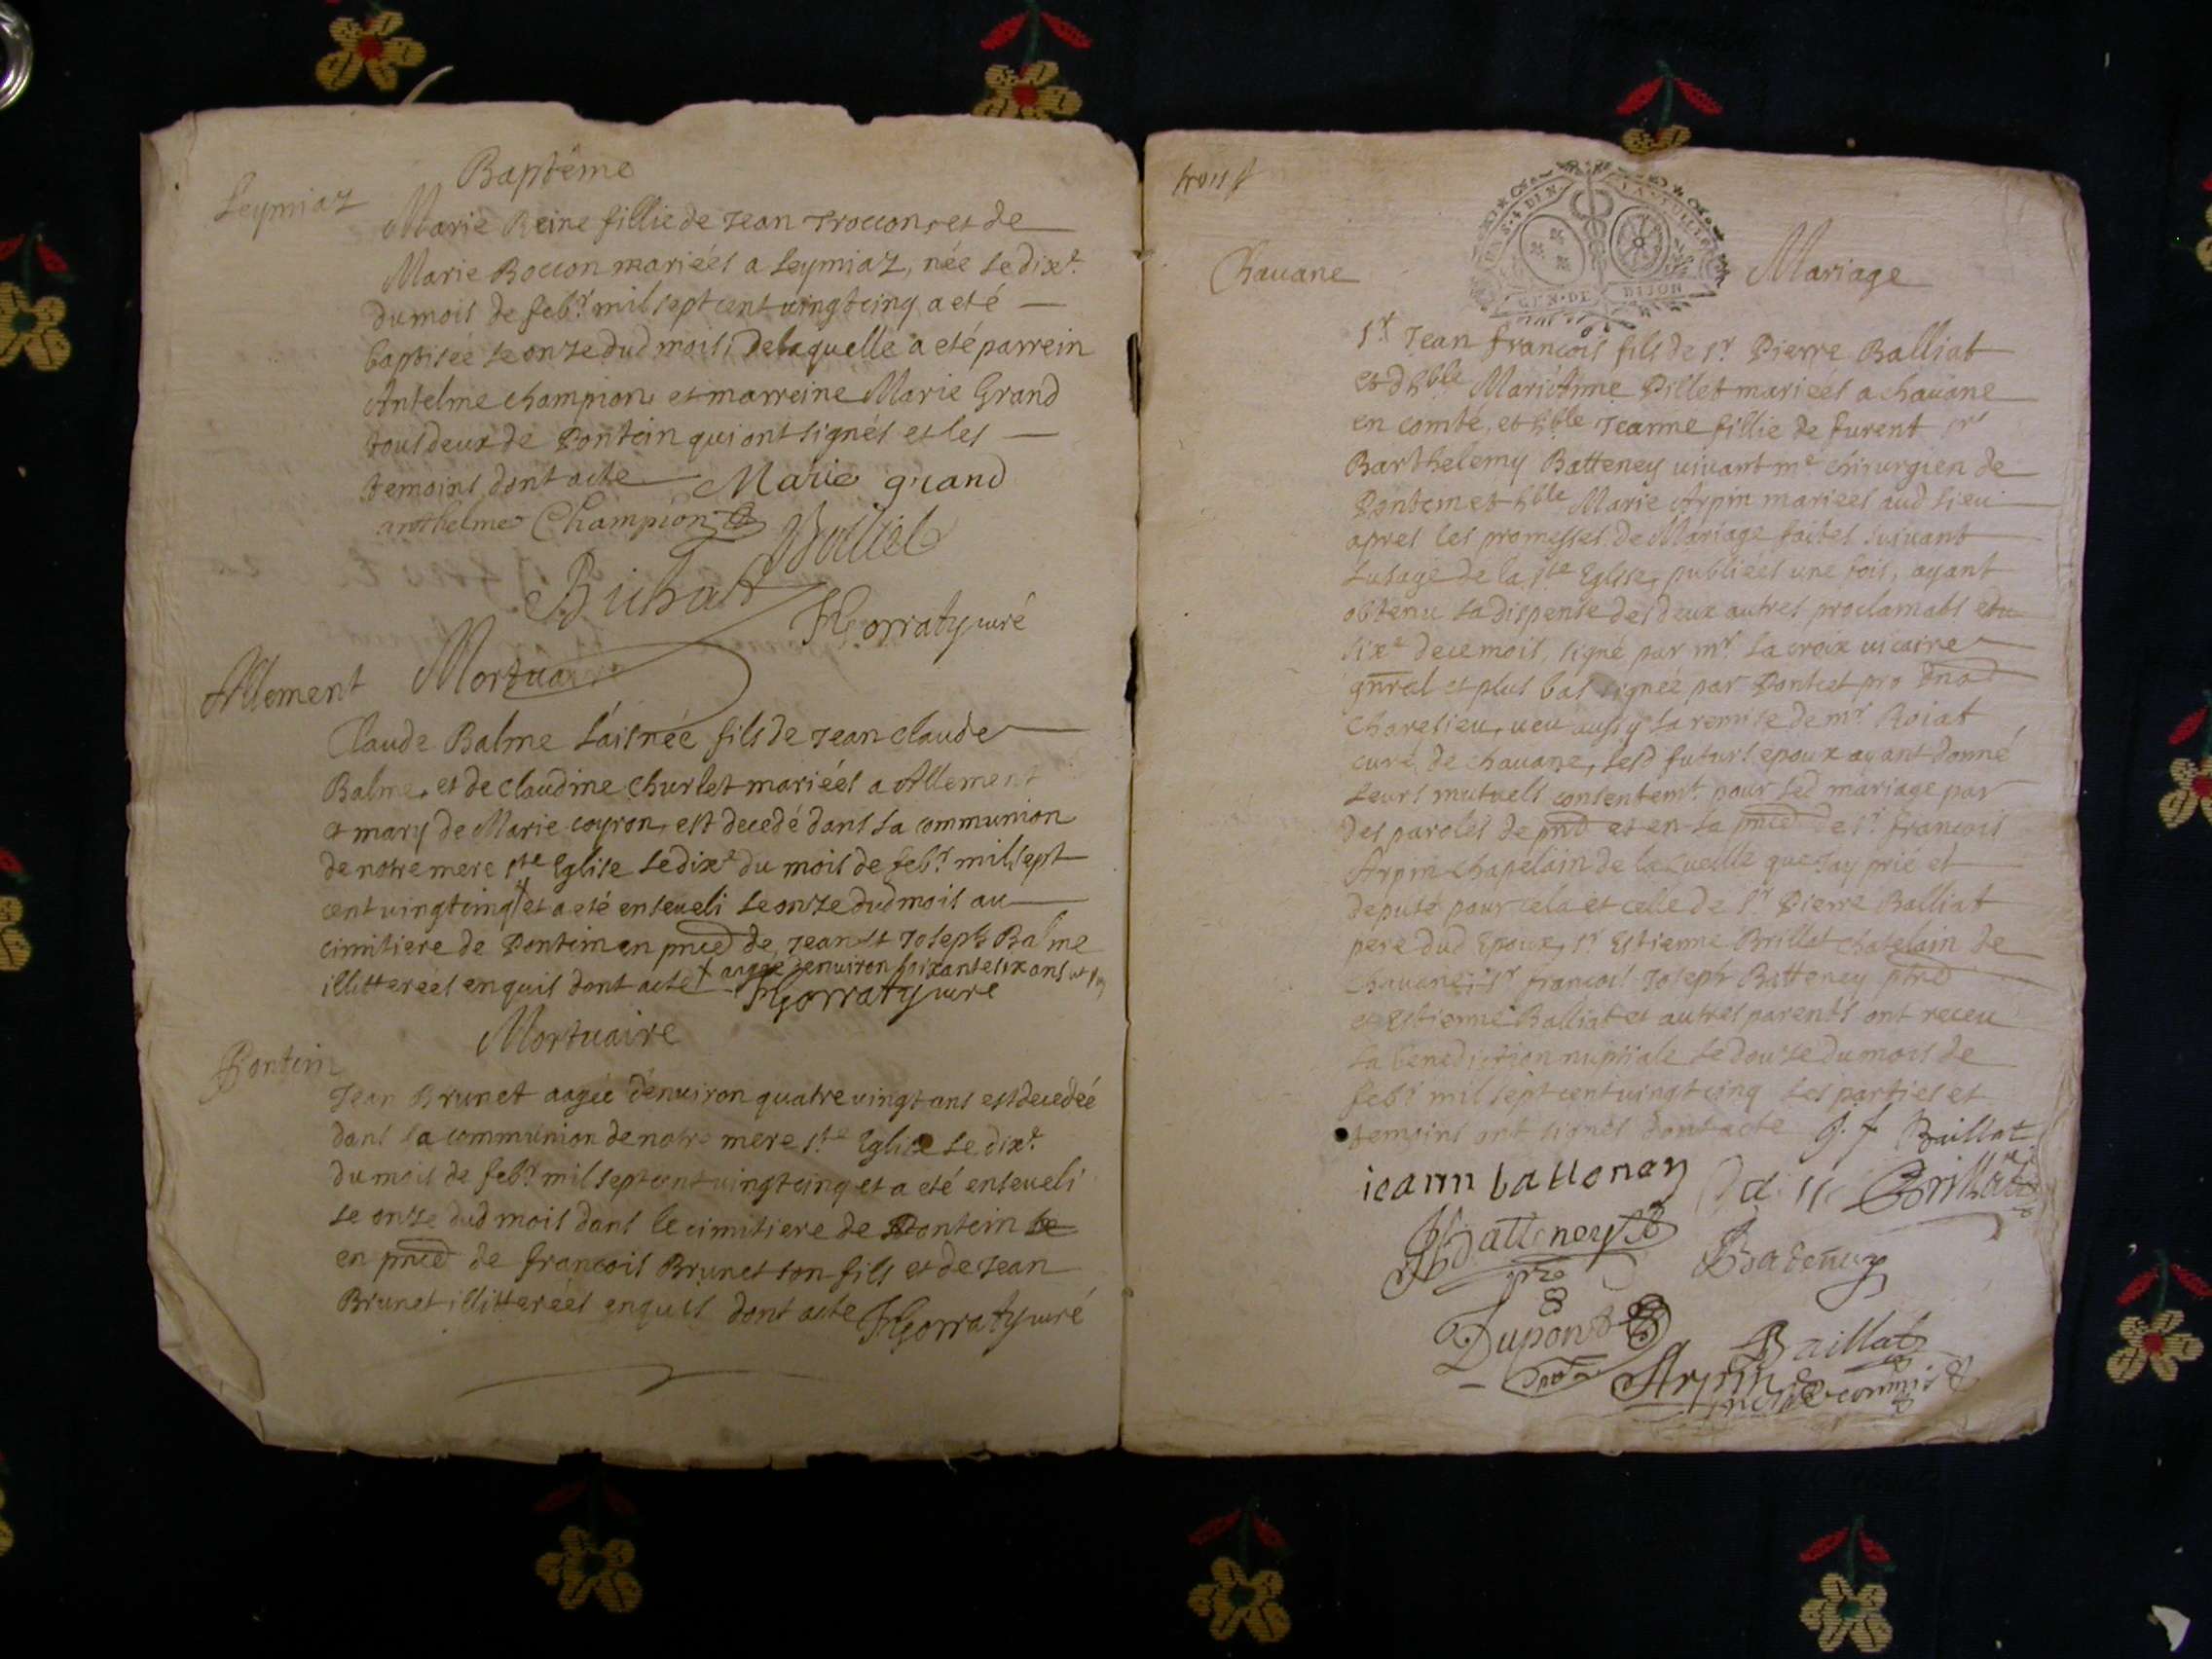 Baptême
Leymiaz
Marie Reine fillie de Jean Troccon, et de
Marie Boccon mariéés a Leymiaz, née le dixe.
du mois de febr. mil sept cent vingt cinq a eté
baptisée le onze dud mois, de laquelle a eté parrein
Antelme champion et marreine Marie Grand
tous deux de Pontein qui ont signés et les
temoins dont acte Marie grand
anthelme Champion
Bichat
FGorraty curé
Allement Mortuaire
Claude Balme L'aisnéé fils de Jean claude
Balme, et de claudine Churlet mariéés a Allement
et mary de Marie coyron, est decedé dans la communion
de notre mere ste Eglise le dixe du mois de febr. mil sept
cent vingt cinq et a eté enseveli le onze dud mois au
cimitiere de Pontein en pnce de Jean et Joseph Balme
illitteréés enquis dont acte aagée denviron soixante six ans
FGorraty curé
Mortuaire
Pontein
Jean Brunet aagéé d'environ quatre vingt ans est decedéé
dans la communion de notre mere ste Eglise le dixe
du mois de febr. mil sept cent vingt cinq et a eté enseveli
le onze dud mois dans le cimitiere de Pontein
en pnce de francois Brunet son fils et de Jean
Brunet illitteréés enquis dont acte FGorraty curé
trois
GEN DE DIJON
Chavane Mariage
Sr. Jean francois fils de sr Pierre Balliat
et d'hble Marie Anne Pillet mariéés a chavane
en comté, et hble Jeanne fillie de furent sr
Barthelemy Batteney vivant me chirurgien de
Pontein et hble Marie Arpin mariéés aud lieu
apres les promesses de Mariage faites suivant
L'usage de la ste Eglise, publiéés une fois, ayant
obtenu la dispense des deux autres proclamats
sixe de ce mois, signé par mr. La croix vicaire
gnral et plus bas signéé par Pontet pro
Charelieu, veu aussy la remise de mr. Roiat
curé de chavane, lesd futurs epoux ayant donné
leurs mutuels consentemt. pour led mariage par
des paroles de pnt et en la pnce de sr. francois
Arpin chapelain de la que Jay prié et
deputé pour cela et celle de sr Pierre Balliat
pere dud Epoux, sr Estienne Brillat chatelain de
chavane, sr francois Joseph Batteney
et Estienne Balliat et autres parents ont receu
la benediction nuptiale le douze du mois de
febr mil sept cent vingt cinq les parties et
temoins ont signés dont acte J. f. Baillat
ieann battenay Brillat
Batteney
Badeney
Dupont
Baillat
Arpin commis